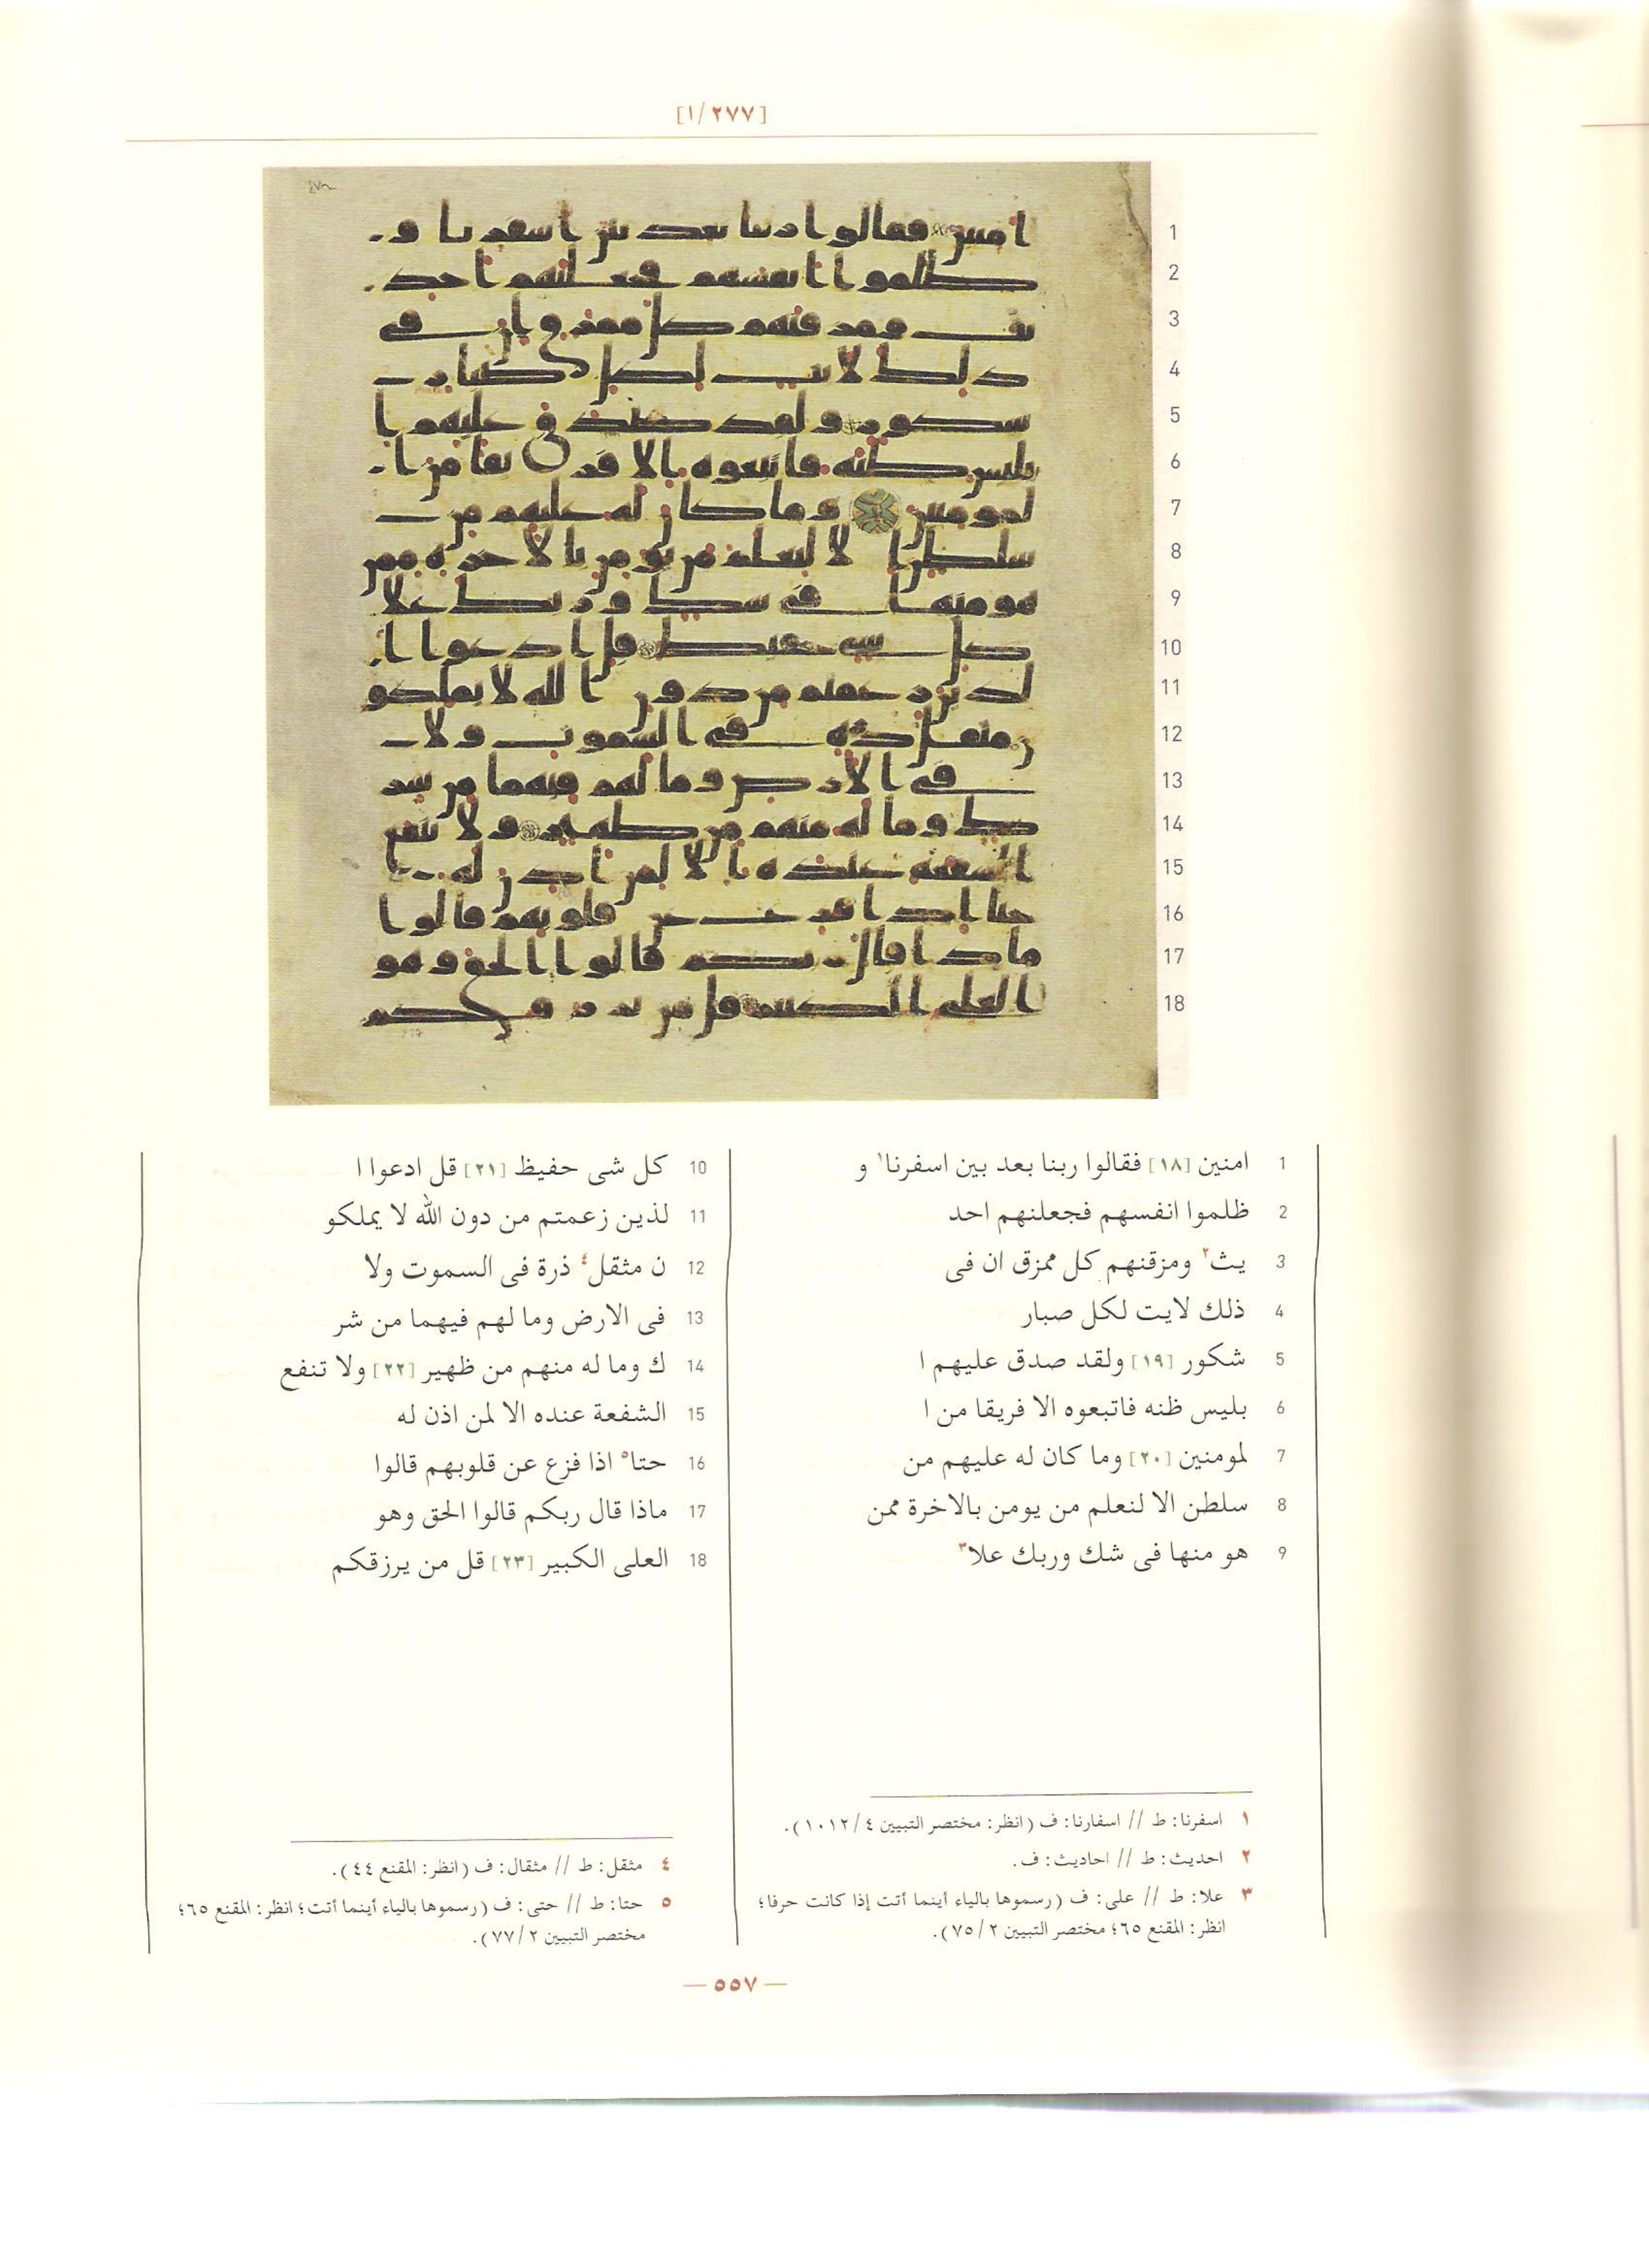 [٢٧٧/١]
1 امنين [١٨] فقالوا ربنا بعد بين اسفرنا١ و
2 ظلموا انفسهم فجعلنهم احد
3 يث٢ ومزقنهم كل ممزق ان فى
4 ذلك لايت لكل صبار
5 شكور [١٩] ولقد صدق عليهم ا
6 بليس ظنه فاتبعوه الا فريقا من ا
7 لمومنين [٢٠] وما كان له عليهم من
8 سلطن الا لنعلم من يومن بالاخرة ممن
9 هو منها فى شك وربك علا٣
10 كل شى حفيظ [٢١] قل ادعوا ا
11 لذين زعمتم من دون الله لا يملكو
12 ن مثقل٤ ذرة فى السموت ولا
13 فى الارض وما لهم فيهما من شر
14 ك وما له منهم من ظهير [٢٢] ولا تنفع
15 الشفعة عنده الا لمن اذن له
16 حتا٥ اذا فزع عن قلوبهم قالوا
17 ماذا قال ربكم قالوا الحق وهو
18 العلى الكبير [٢٣] قل من يرزقكم
١ اسفرنا: ط // اسفارنا: ف (انظر: مختصر التبيين ١٠١٢/٤).
٢ احديث: ط // احاديث: ف.
٣ علا: ط // على: ف (رسموها بالياء أينما أتت إذا كانت حرفا؛
انظر: المقنع ٦٥؛ مختصر التبيين ٧٥/٢).
٤ مثقل: ط // مثقال: ف (انظر: المقنع ٤٤).
٥ حتا: ط // حتى: ف (رسموها بالياء أينما أتت؛ انظر: المقنع ٦٥؛
مختصر التبيين ٧٧/٢).
— ٥٥٧ —